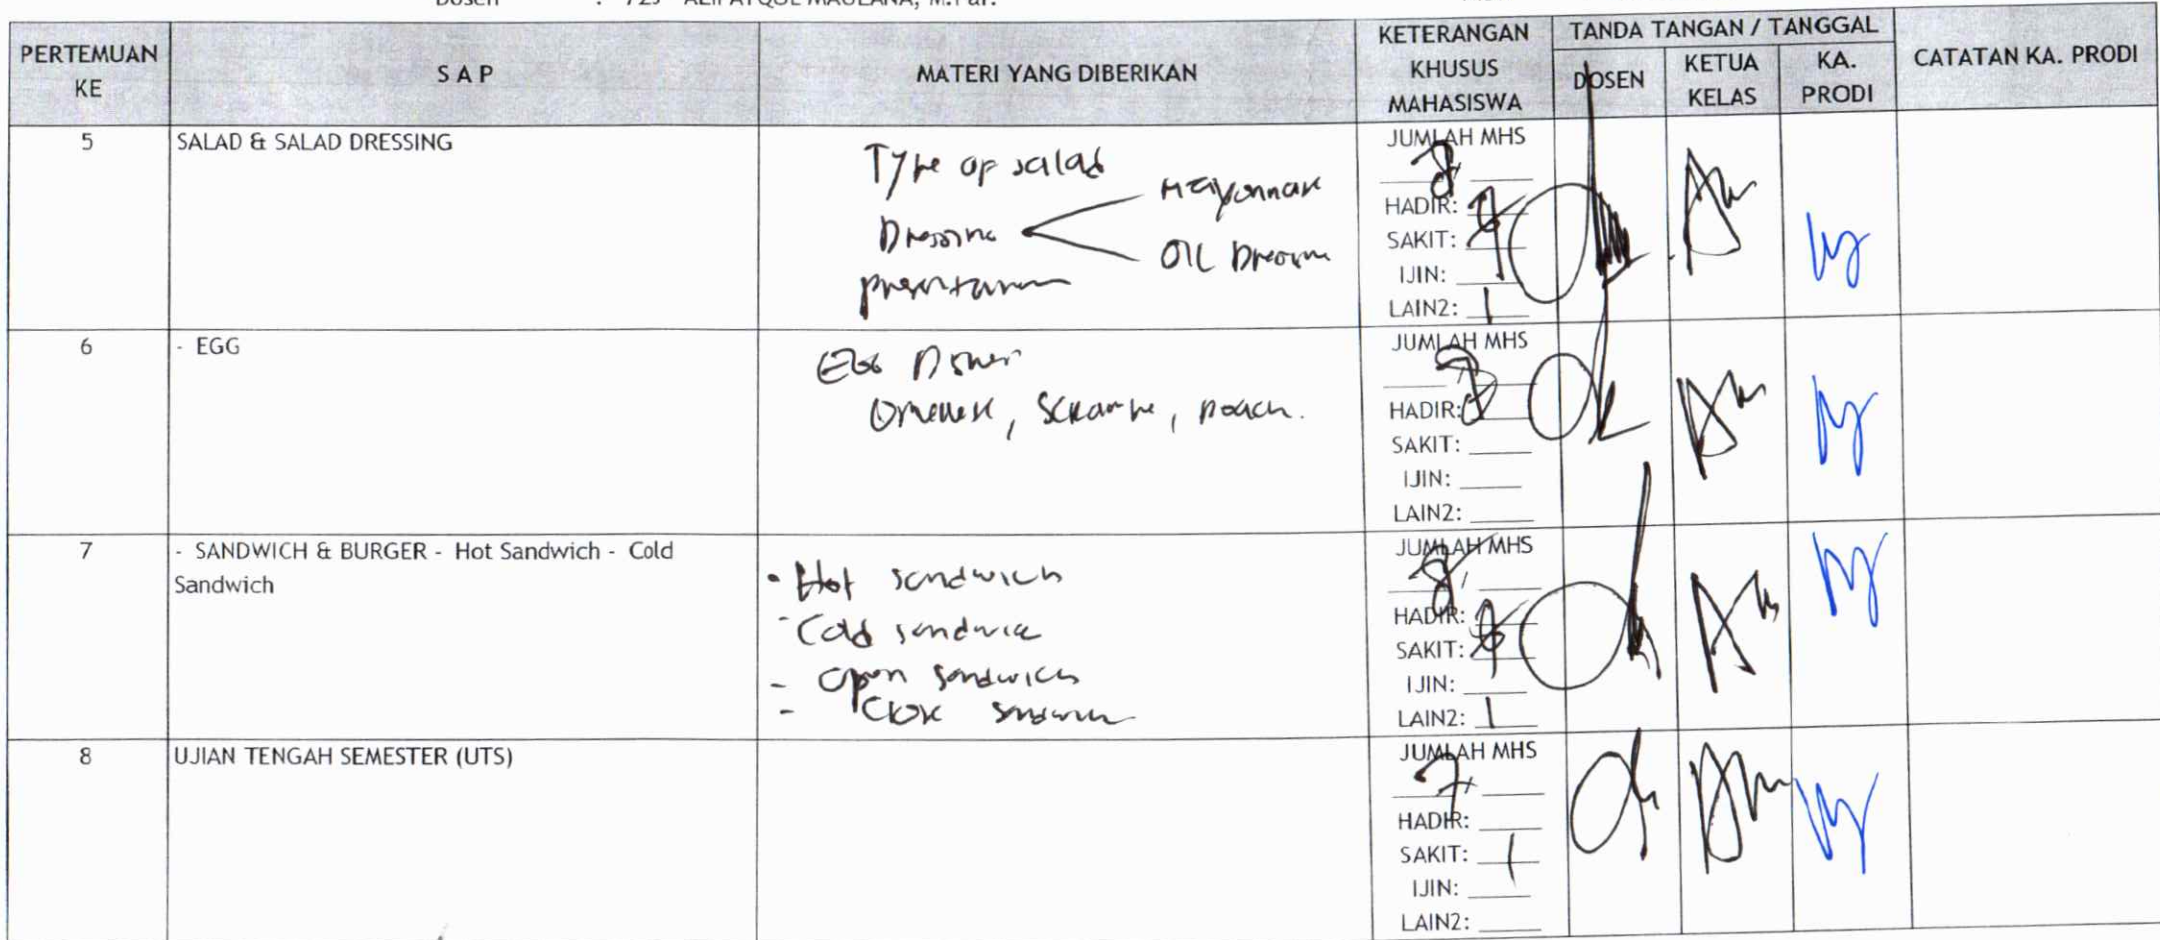 PERTEMUAN KE
S A P
MATERI YANG DIBERIKAN
KETERANGAN KHUSUS MAHASISWA
TANDA TANGAN / TANGGAL
DOSEN
KETUA KELAS
KA. PRODI
CATATAN KA. PRODI
5
SALAD & SALAD DRESSING
Type of salad
Dressing
Mayonnaise
Oil Dressing
presentation
JUMLAH MHS
8
HADIR:
SAKIT:
IJIN:
LAIN2: 1
6
- EGG
Egg Dishes
Omelet, Scramble, poach.
JUMLAH MHS
HADIR:
SAKIT:
IJIN:
LAIN2:
7
- SANDWICH & BURGER - Hot Sandwich - Cold
Sandwich
- Hot sandwich
- Cold sandwich
- Open sandwich
- Close sandwich
JUMLAH MHS
8
HADIR:
SAKIT:
IJIN:
LAIN2: 1
8
UJIAN TENGAH SEMESTER (UTS)
JUMLAH MHS
7
HADIR:
SAKIT: 1
IJIN:
LAIN2: